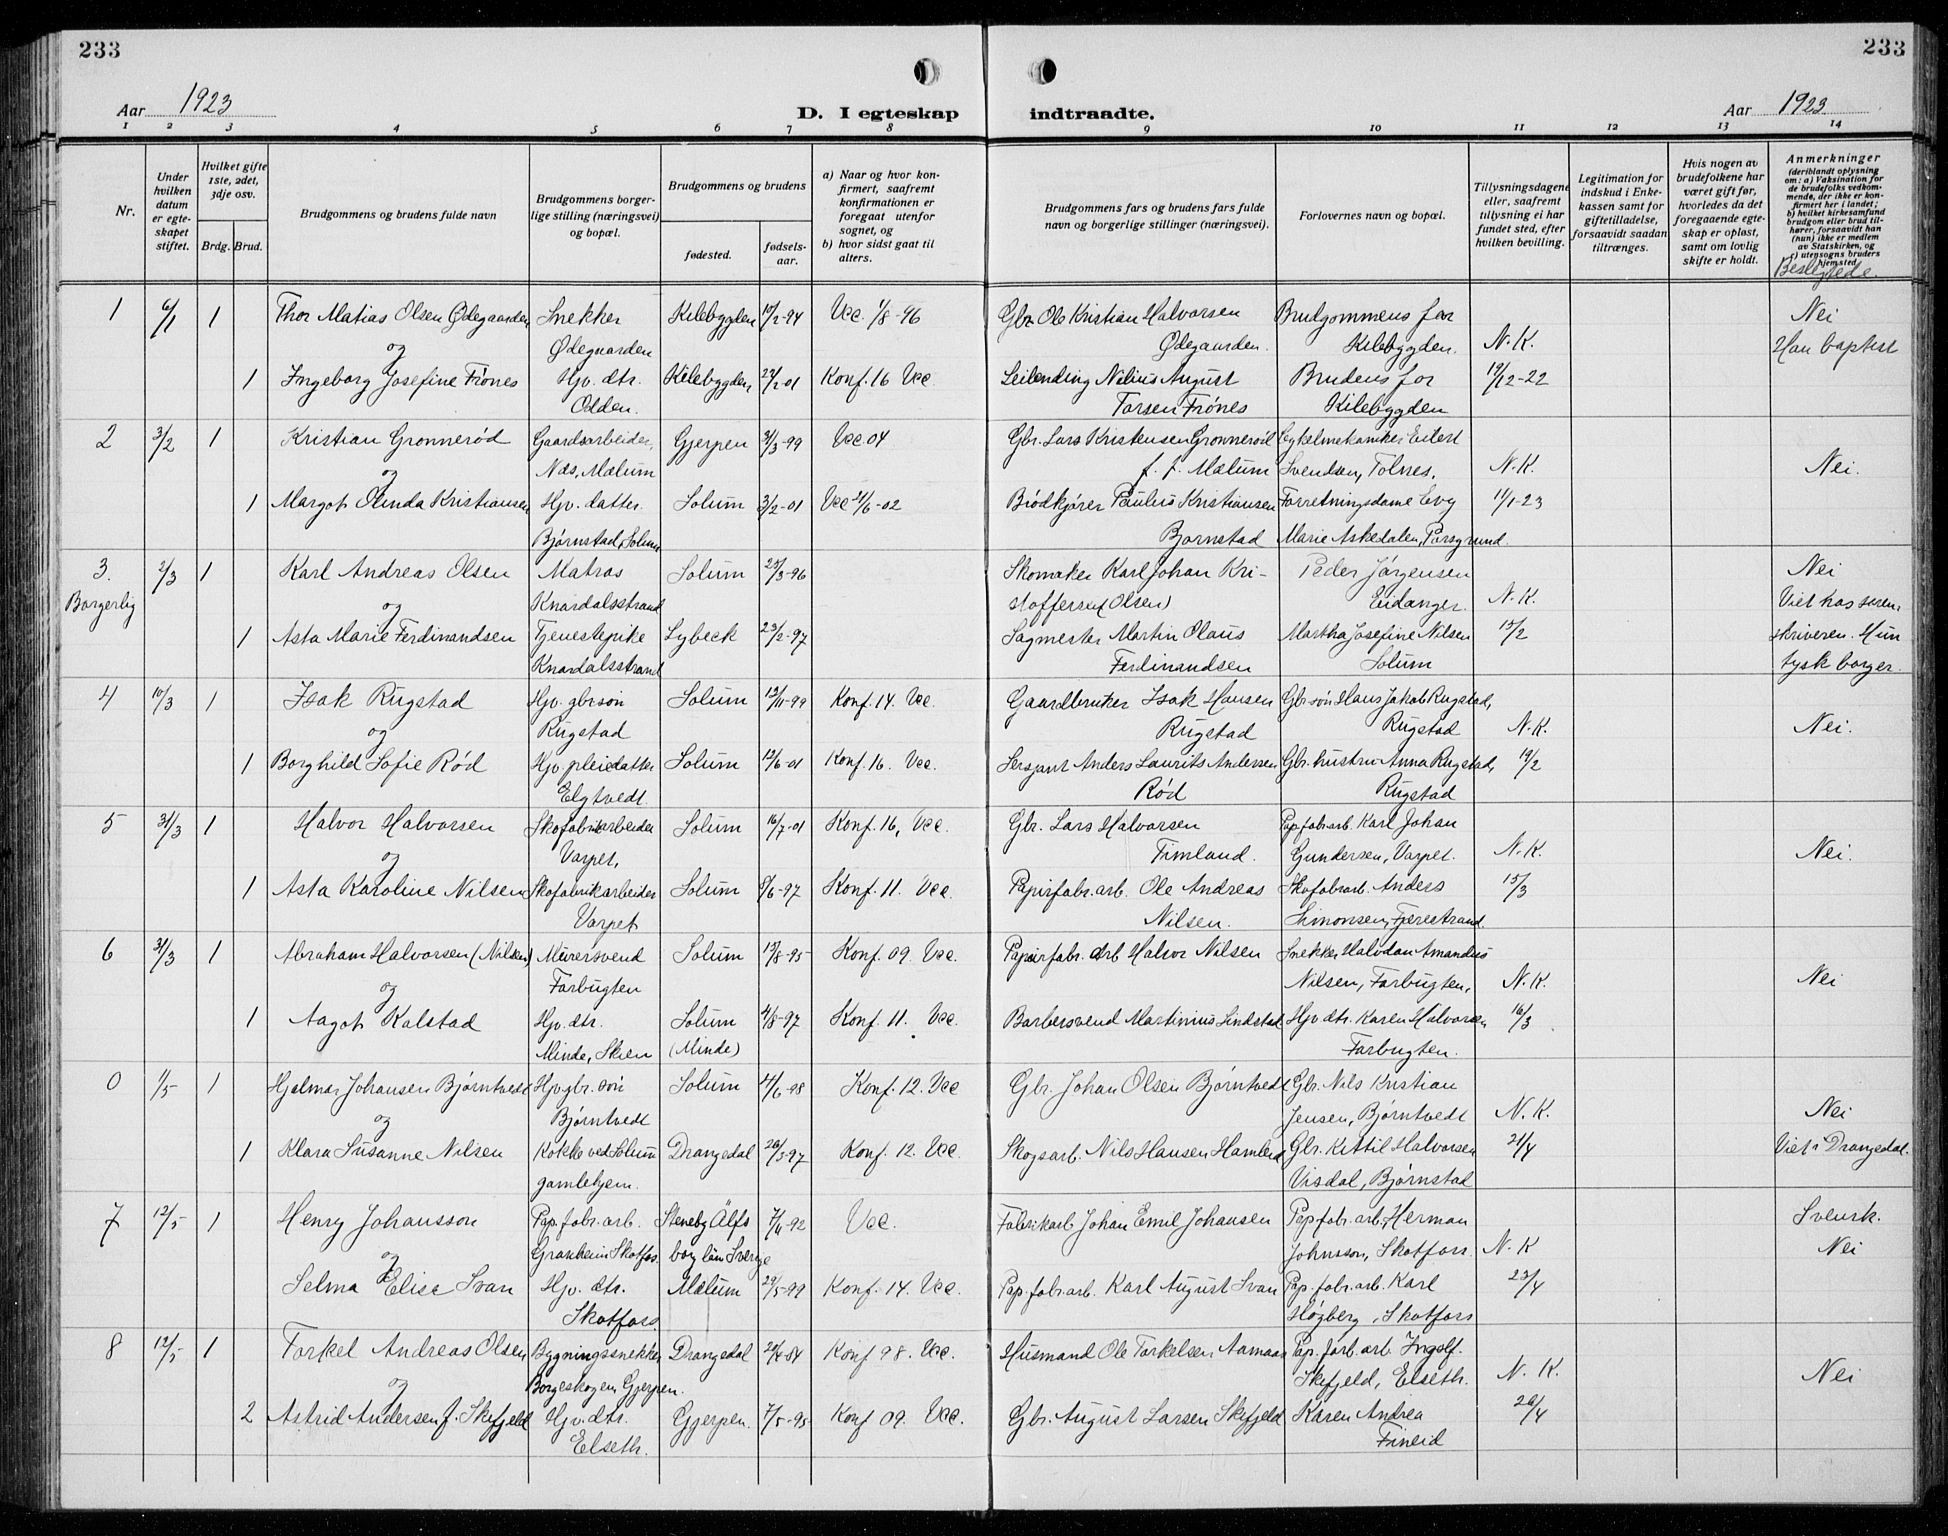 233
233
Aar 1923
D. I egteskap indtraadte.
Aar 1923.
1 2 3 4 5 6 7 8 9 10 11 12 13 14
Nr.
Under hvilken datum er egteskapet stiftet.
Hvilket gifte 1ste, 2det, 3dje osv.
Brdg. Brud.
Brudgommens og brudens fulde navn
Brudgommens borgerlige stilling (næringsvei) og bopæl.
Brudgommens og brudens
fødested.
fødselsaar.
a) Naar og hvor konfirmert, saafremt konfirmationen er foregaat utenfor sognet, og
b) hvor sidst gaat til alters.
Brudgommens fars og brudens fars fulde navn og borgerlige stillinger (næringsvei).
Forlovernes navn og bopæl.
Tillysningsdagene eller, saafremt tillysning ei har fundet sted, efter hvilken bevilling.
Legitimation for indskud i Enkekassen samt for giftetilladelse, forsaavidt saadan tiltrænges.
Hvis nogen av brudefolkene har været gift før, hvorledes da det foregaaende egteskap er opløst, samt om lovlig skifte er holdt.
Anmerkninger (deriblandt oplysning om: a) Vaksination for de brudefolks vedkommende, der ikke er konfirmert her i landet; b) hvilket kirkesamfund brudgom eller brud tilhører, forsaavidt han (hun) ikke er medlem av Statskirken, og c) utensogns bruders hjemsted.
Beslegtede.
1 6/1 1 Thor Matias Olsen Ødegaarden Snekker Kilebygden 10/2-94 Vcc. 1/8-96 Gbr Ole Kristian Halvorsen Brudgommens far Nei
og Ødegaarden Ødegaarden. Kilebygden. N.K. Han baptist
1 Ingeborg Josefine Frónes Hjv. dtr. Kilebygden 22/2-01 Konf. 16 Vcc. Leilending Nilius August Brudens far 19/12-22
Odden. Tarsen Frónes Kilebygden
2 3/2 1 Kristian Gronnerød Gaardsarbeider, Gjerpen 31/3-99 Vcc 04 Gbr. Lars Kristensen Gronnerød Cykelmekaniker Eilert
og Næs, Mælum f. f. Mælum Svendsen, Tolnes, N.K. Nei.
1 Margot Olinda Kristiansen Hjv. datter. Solum 3/2-01 Vcc 21/6-02 Brødkjører Paulus Kristiansen Forretningsdame Evy 11/1-23
Bjørnstad, Solum Bjornstad Marie Askedalen, Porsgrund.
3. 2/3 1 Karl Andreas Olsen Matros Solum 23/3-96 Skomaker Karl Johan Kri- Peder Jørgensen Nei
Borgerlig og Knardalsstrand stoffersen (Olsen) Eidanger. N.K. Viet hos soren-
1 Asta Marie Ferdinandsen Tjenestepike Lybeck 23/2-97 Sagmester Martin Olaus Martha Josefine Nilsen 15/2 skriveren. Hun
Knardalsstrand Ferdinandsen Solum tysk borger.
4 10/3 1 Isak Rugstad Hjv. gbrsøn Solum 12/11-99 Konf. 14. Vcc. Gaardbruker Isak Hansen Gbr søn Hans Jakob Rugstad,
og Rugstad Rugstad Rugstad N.K. Nei.
1 Borghild Sofie Rød Hjv. pleiedatter Solum 12/6-01 Konf. 16. Vcc. Sersjant Anders Laurits Andersen Gbr. hustru Anna Rugstad, 19/2
Elgtvedt. Rød Rugstad
5 31/3 1 Halvor Halvorsen Skofabrikarbeider Solum 16/7-01 Konf. 16, Vcc. Gbr. Lars Halvorsen Pap.fabr.arb. Karl Johan
og Varpet, Timland. Gundersen, Varpet. N.K. Nei.
1 Asta Karoline Nilsen Skofabrikarbeider Solum 8/6-97 Konf. 11. Vcc. Papirfabr.arb. Ole Andreas Skofabrarb. Anders 15/3
Varpet Nilsen. Simonsen, Fjerestrand.
6 31/3 1 Abraham Halvorsen (Nilsen) Murersvend Solum 13/8-95 Konf. 09. Vcc. Papirfabr. arb Halvor Nilsen Snekker Halvdan Amandus
og Farbugten Nilsen, Farbugten, N.K. Nei
1 Aagot Kalstad Hjv. dtr. Solum 4/8-97 Konf. 11. Vcc. Barbersvend Martinius Lindstad Hjv dtr. Karen Halvorsen 16/3
Minde, Skien (Minde) Farbugten.
0 1/5 1 Hjalmar Johansen Bjørntvedt Hjv. gbr. søn Solum 4/6-98 Konf. 12. Vcc Gbr. Johan Olsen Bjørntvedt Gbr. Nils Kristian
og Bjørntvedt Jensen, Bjørntvedt N.K. Nei
1 Klara Susanne Nilsen Kokke ved Solum Drangedal 26/3-97 Konf. 12. Vcc. Skogsarb. Nils Hansen Gbr. Kittil Halvorsen 21/4 Viet i Drangedal.
gamlehjem. Visdal, Bjørnstad
7 12/5 1 Henry Johansson Pap.fabr.arb. Steneby Älfs 7/4-92 Vcc. Fabrikarb Johan Emil Johansen Pap.fabr.arb. Herman Svensk.
og Granheim Skotfos. borg län Sverge Johnsson, Skotfoss. N.K Nei
Selma Elise Svan Hjv. dtr. Mælum 29/5-99 Konf. 14. Vcc. Pap.fabr.arb. Karl August Svan Pap.fabr.arb. Karl 23/4
Skotfoss. Høgberg, Skotfoss
8 12/5 1 Torkel Andreas Olsen Bygningssnekker Drangedal 29/4-84 Konf 98. Vcc. Husmand Ole Torkelsen Aamaas Pap. farb. arb. Ingolf
og Borgeskogen, Gjerpen. Skifjeld, Elseth. N.K. Nei
2 Astrid Andersen f. Skifjeld Hjv. dtr. Gjerpen. 7/5-95 Konf 09. Vcc. Gbr. August Larsen Skifjeld Karen Andrea 26/4
Elseth. Fineid